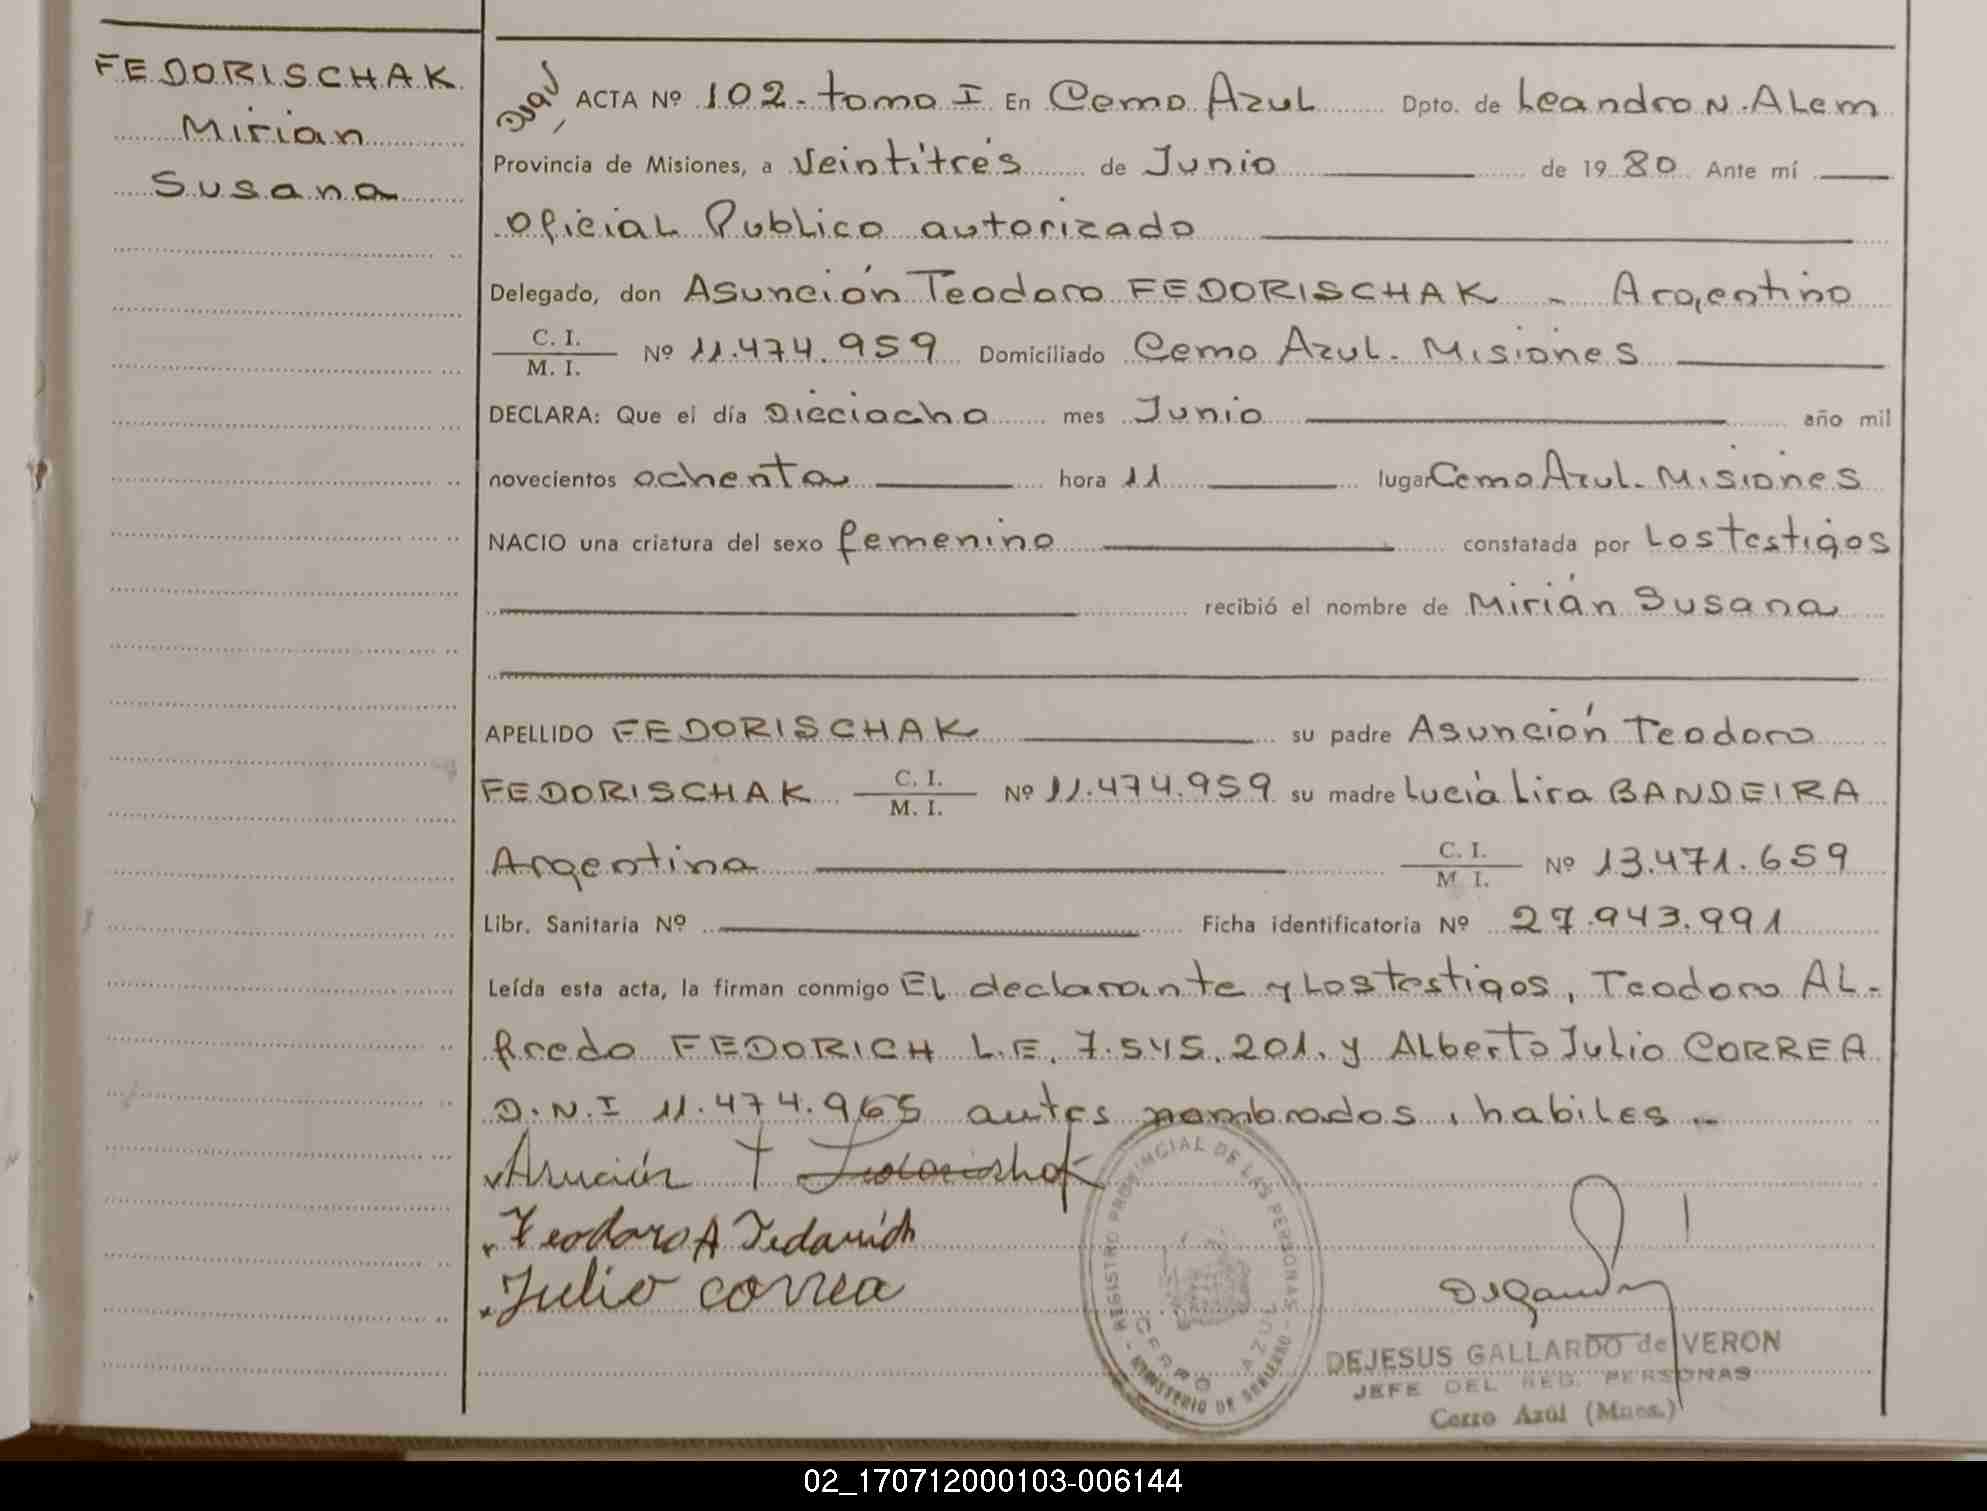 FEDORISCHAK
Mirian
Susana
ACTA Nº 102 - tomo I En Cerro Azul Dpto. de Leandro N. Alem
Provincia de Misiones, a Veintitrés de Junio de 1980 Ante mí
Oficial Publico autorizado
Delegado, don Asunción Teodoro FEDORISCHAK - Argentino
C. I.
M. I. Nº 11.474.959 Domiciliado Cerro Azul - Misiones
DECLARA: Que el día Dieciocho mes Junio año mil
novecientos ochenta hora 11 lugar Cerro Azul - Misiones
NACIO una criatura del sexo femenino constatada por Los testigos
recibió el nombre de Mirián Susana
APELLIDO FEDORISCHAK su padre Asunción Teodoro
FEDORISCHAK C. I. M. I. Nº 11.474.959 su madre Lucía Lira BANDEIRA
Argentina C. I. M. I. Nº 13.471.659
Libr. Sanitaria Nº Ficha identificatoria Nº 27.943.991
Leída esta acta, la firman conmigo El declarante y Los testigos, Teodoro Al-
fredo FEDORICH L.E. 7.545.201. y Alberto Julio CORREA
D.N.I 11.474.965 antes nombrados, habiles -
Asunción T Fedorishak
Teodoro A Fedorich
Julio Correa
REGISTRO PROVINCIAL DE LAS PERSONAS
CERRO AZUL
MINISTERIO DE GOBIERNO
DEJESUS GALLARDO de VERON
JEFE DEL REG. PERSONAS
Cerro Azúl (Mnes.)
02_170712000103-006144